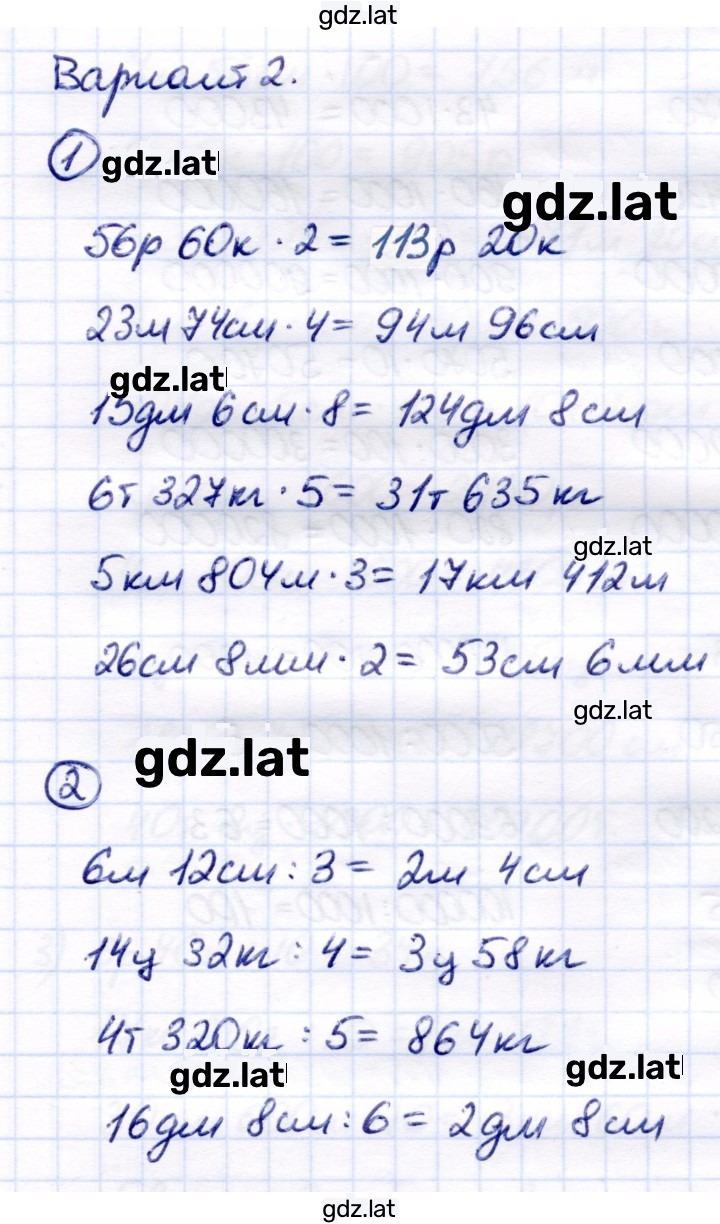 gdz.lat
Вариант 2.
1 gdz.lat
gdz.lat
56р 60к · 2 = 113р 20к
23м 74см · 4 = 94м 96см
gdz.lat
15дм 6см · 8 = 124дм 8см
6т 327кг · 5 = 31т 635кг
gdz.lat
5км 804м · 3 = 17км 412м
26см 8мм · 2 = 53см 6мм
gdz.lat
2 gdz.lat
6м 12см : 3 = 2м 4см
14ц 32кг : 4 = 3ц 58кг
4т 320кг : 5 = 864кг
gdz.lat gdz.lat
16дм 8см : 6 = 2дм 8см
gdz.lat